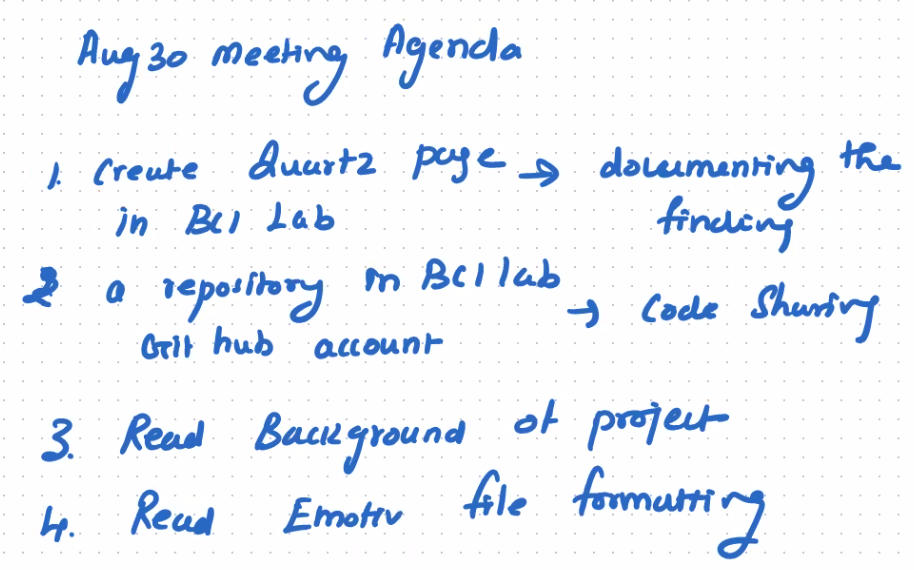 Aug 30 meeting Agenda
1. Create Quartz page → documenting the
in BCI Lab finding
2 a repository in BCI lab
Git hub account → Code Sharing
3. Read Background of project
4. Read Emotiv file formatting